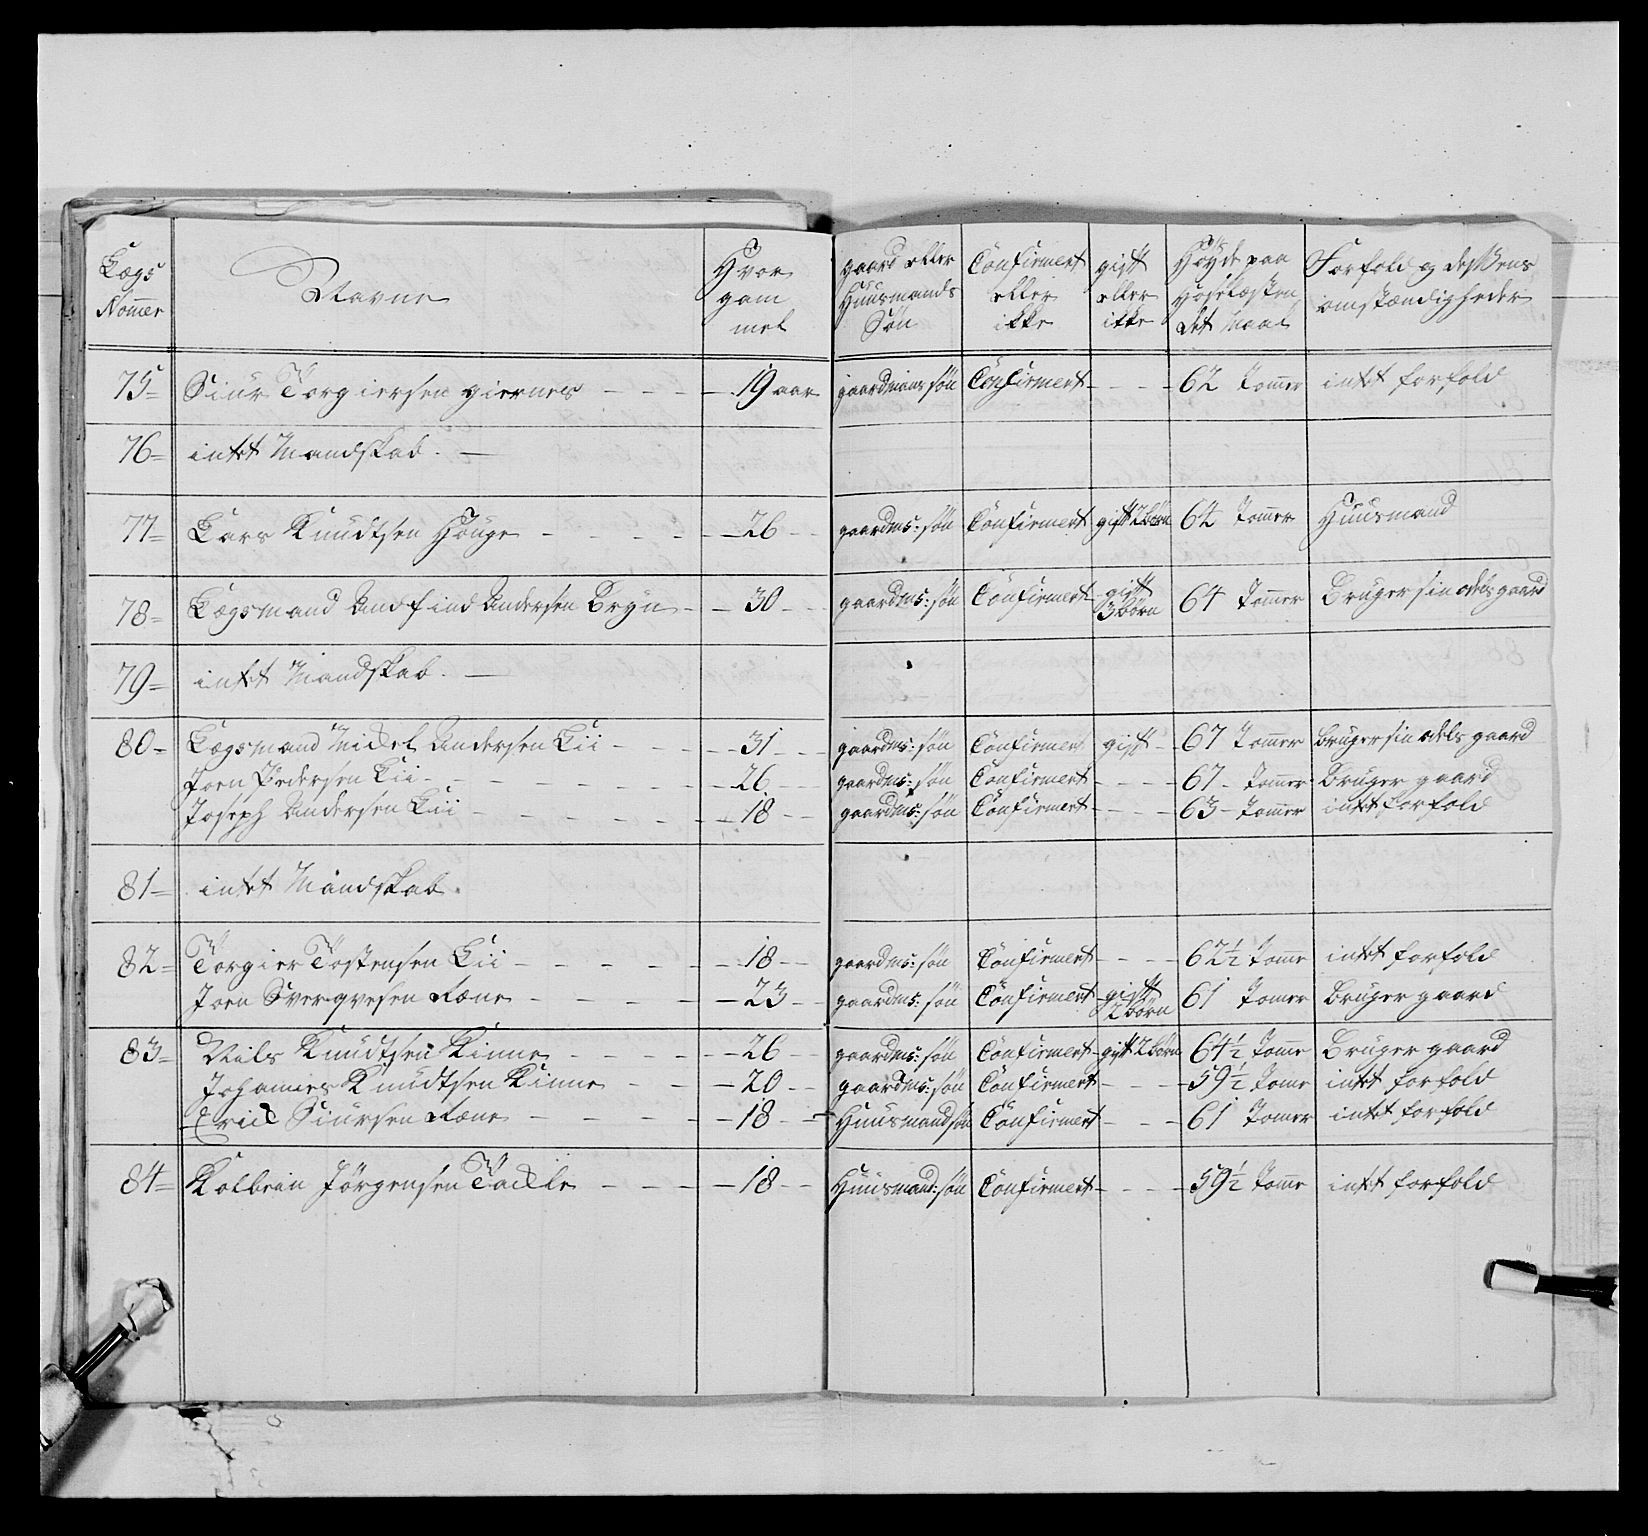 Lægs Nommer | Navne | Hvor gam mel | gaard eller Huusmands Søn | Confirmert eller ikke | gift eller ikke | Høyde paa Hoselæsten det Maal | Forfold og desssens omstændigheder
75 Siur Torgiersen giernes - - - 19 aar gaardmans søn Confirmert - - - 62 Tommer intet forfold
76 intet Mandskab. -
77 Lars Knudtsen Houge - - - - 26 - gaardms: søn Confirmert gift 2 børn 64 Tommer Huusmand
78 Lægsmand Andfind Andersen Bryn - - 30 - gaardms: søn Confirmert gift 3 børn 64 Tommer Bruger sin odels gaard
79 intet Mandskab. -
80 Lægsmand Mickel Andersen Lii - - - 31 - - gaardms: søn Confirmert gift - 67 Tommer Bruger sin odels gaard
Joen Pedersen Lii - - - - - 26 - - gaardms: søn Confirmert - - - 67 - Tommer Bruger gaard
Joseph Andersen Lii - - - - - 18 - - gaardms: søn Confirmert - - - 63 - Tommer intet forfold
81 intet Mandskab.
82 Torgier Tostensen Lii - - - - - 18 - gaardms: søn Confirmert - - - 62½ Tomme intet forfold
Joen Svergvesen Ræne - - - - - 23 - - gaardms: søn Confirmert gift 2 børn 61 Tomer Bruger gaard
83 Niils Knudtsen Kinne - - - - 26 - - gaardms: søn Confirmert gift 2 børn 64½ Tomme Bruger gaard
Johannes Knudtsen Kinne - - - 20 - - gaardms: søn Confirmert - - - 59½ Tome intet forfold
Erick Siursen Ræne - - - - - 18 - - Huusmand søn Confirmert - - - 61 Tomer intet forfold
84 Kolbein Jørgensen - - - 18 - - Huusmand: søn Confirmert - - - 59½ Tomme intet forfold